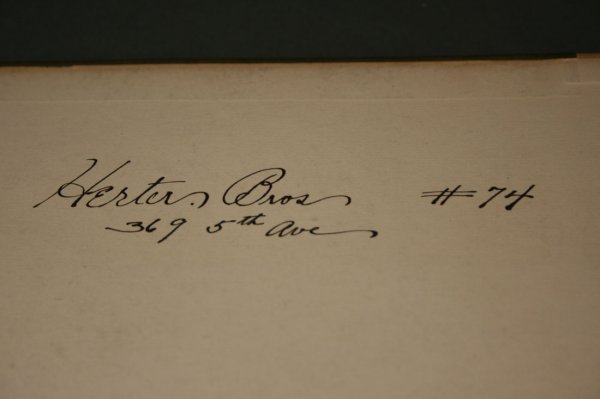 Herter. Bros #74
369 5th Ave